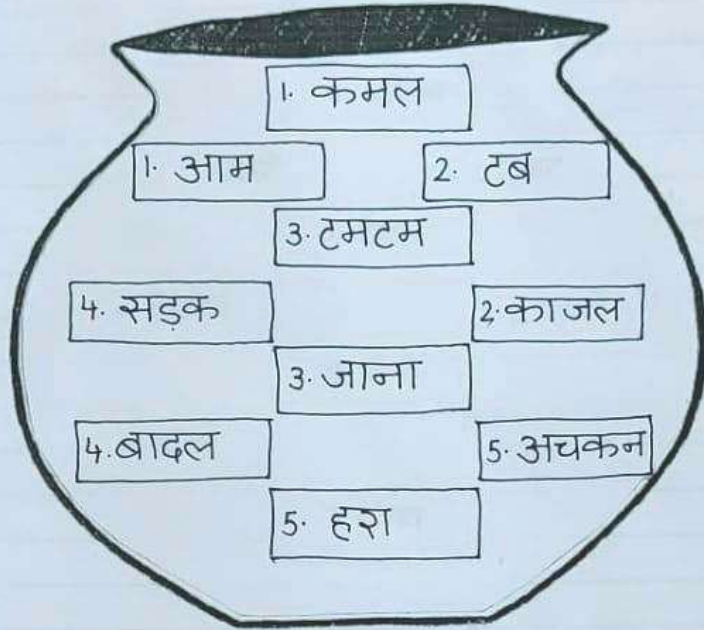 1. कमल
1. आम
2. टब
3. टमटम
4. सड़क
2. काजल
3. जाना
4. बादल
5. अचकन
5. हरा